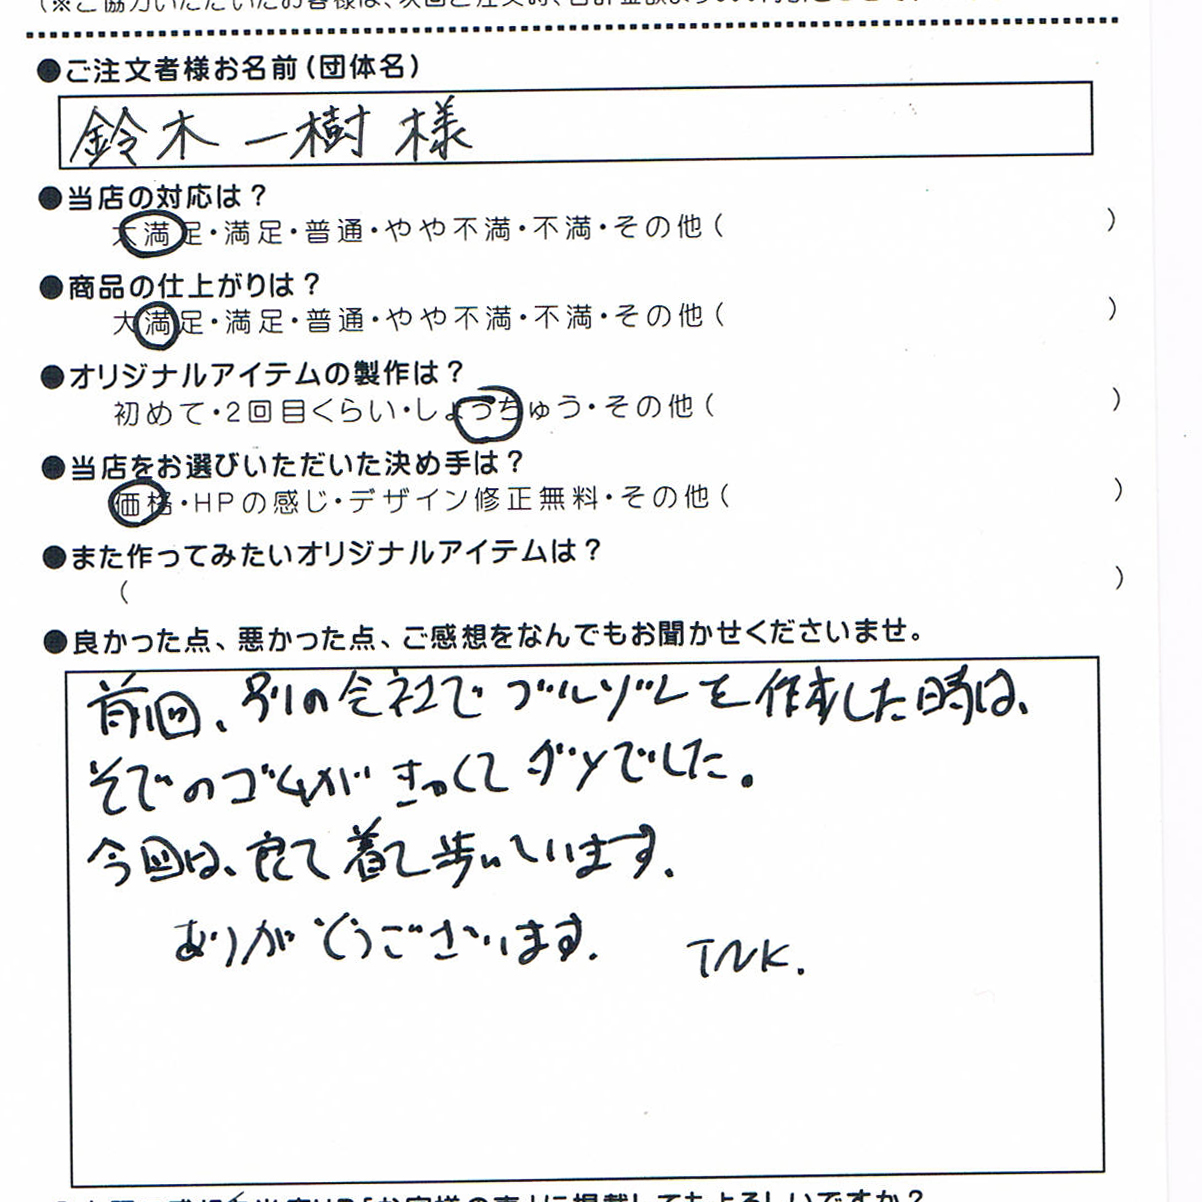 ●ご注文者様お名前(団体名)
鈴木一樹様
●当店の対応は?
大満足・満足・普通・やや不満・不満・その他( )
●商品の仕上がりは?
大満足・満足・普通・やや不満・不満・その他( )
●オリジナルアイテムの製作は?
初めて・2回目くらい・しょっちゅう・その他( )
●当店をお選びいただいた決め手は?
価格・HPの感じ・デザイン修正無料・その他( )
●また作ってみたいオリジナルアイテムは?
( )
●良かった点、悪かった点、ご感想をなんでもお聞かせくださいませ。
前回、別の会社でブルゾンを作成した時は、
そでのゴムがきつくてダメでした。
今回は、良くて着て歩いています。
ありがとうございます. TNK.